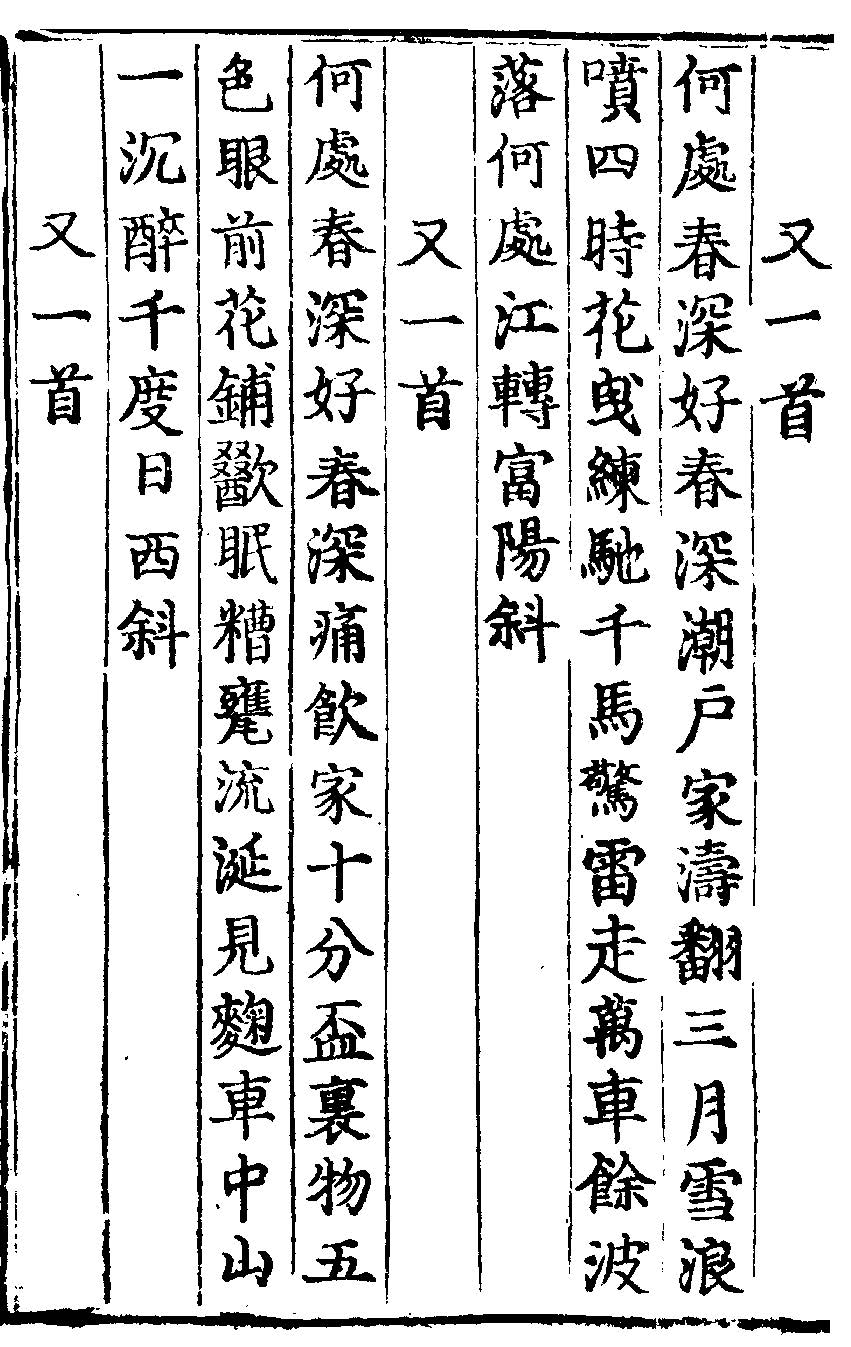 又一首
何處春深好春深潮戸家濤翻三月雪浪
噴四時花曳練馳千馬驚雷走萬車餘波
落何處江轉富陽斜
又一首
何處春深好春深痛飲家十分盃裏物五
色眼前花鋪歠眠糟甕流涎見麴車中山
一沉醉千度日西斜
又一首